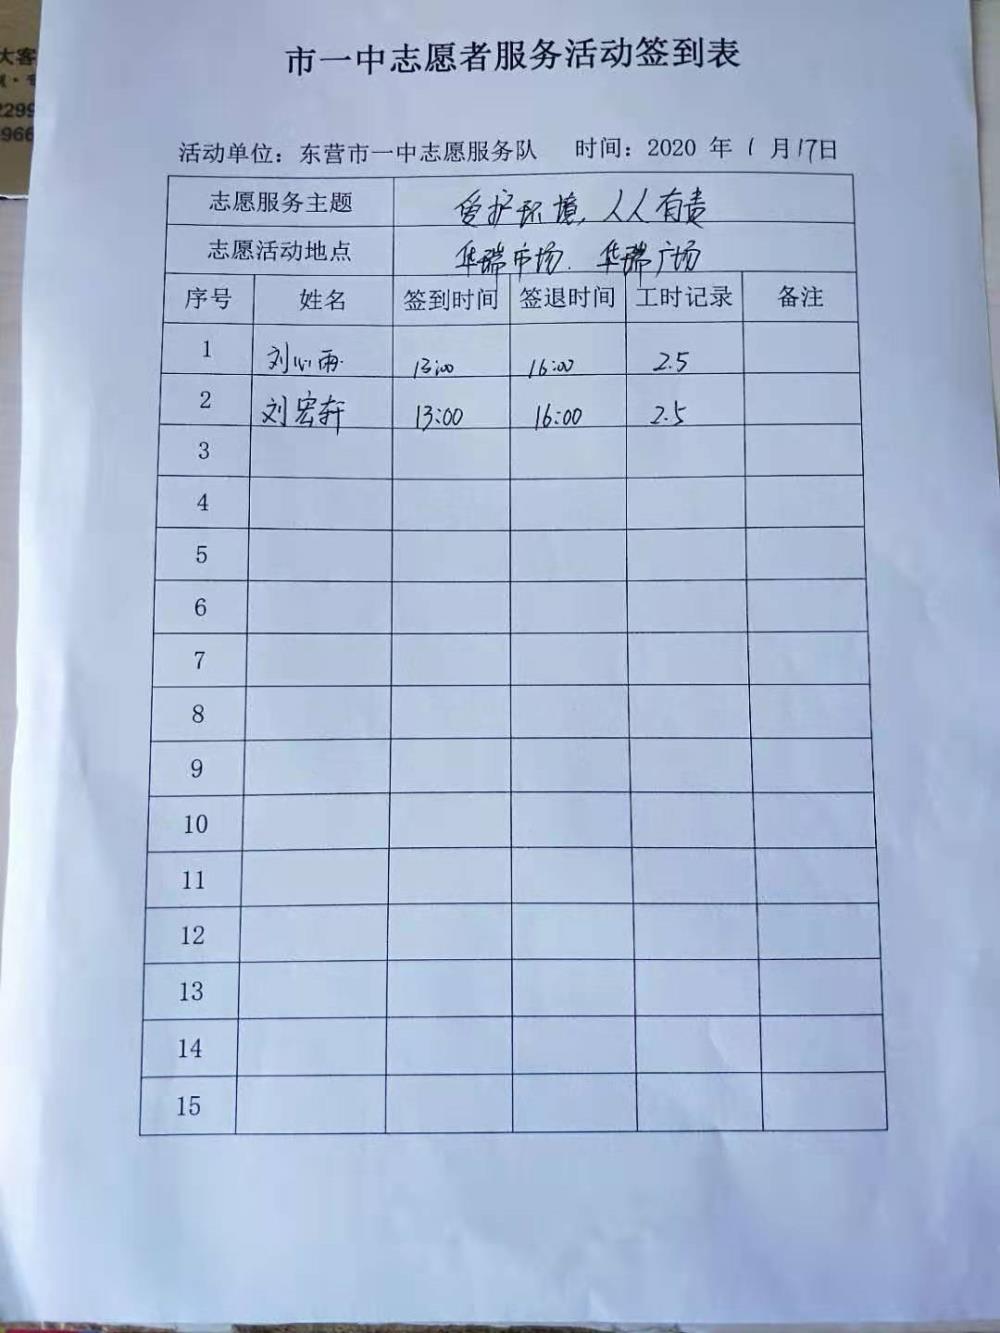 大客
2299
966
市一中志愿者服务活动签到表
活动单位：东营市一中志愿服务队 时间：2020 年 1 月 17日
志愿服务主题 爱护环境,人人有责
志愿活动地点 华瑞市场. 华瑞广场
序号 姓名 签到时间 签退时间 工时记录 备注
1 刘心雨 13:00 16:00 2.5
2 刘宏轩 13:00 16:00 2.5
3
4
5
6
7
8
9
10
11
12
13
14
15